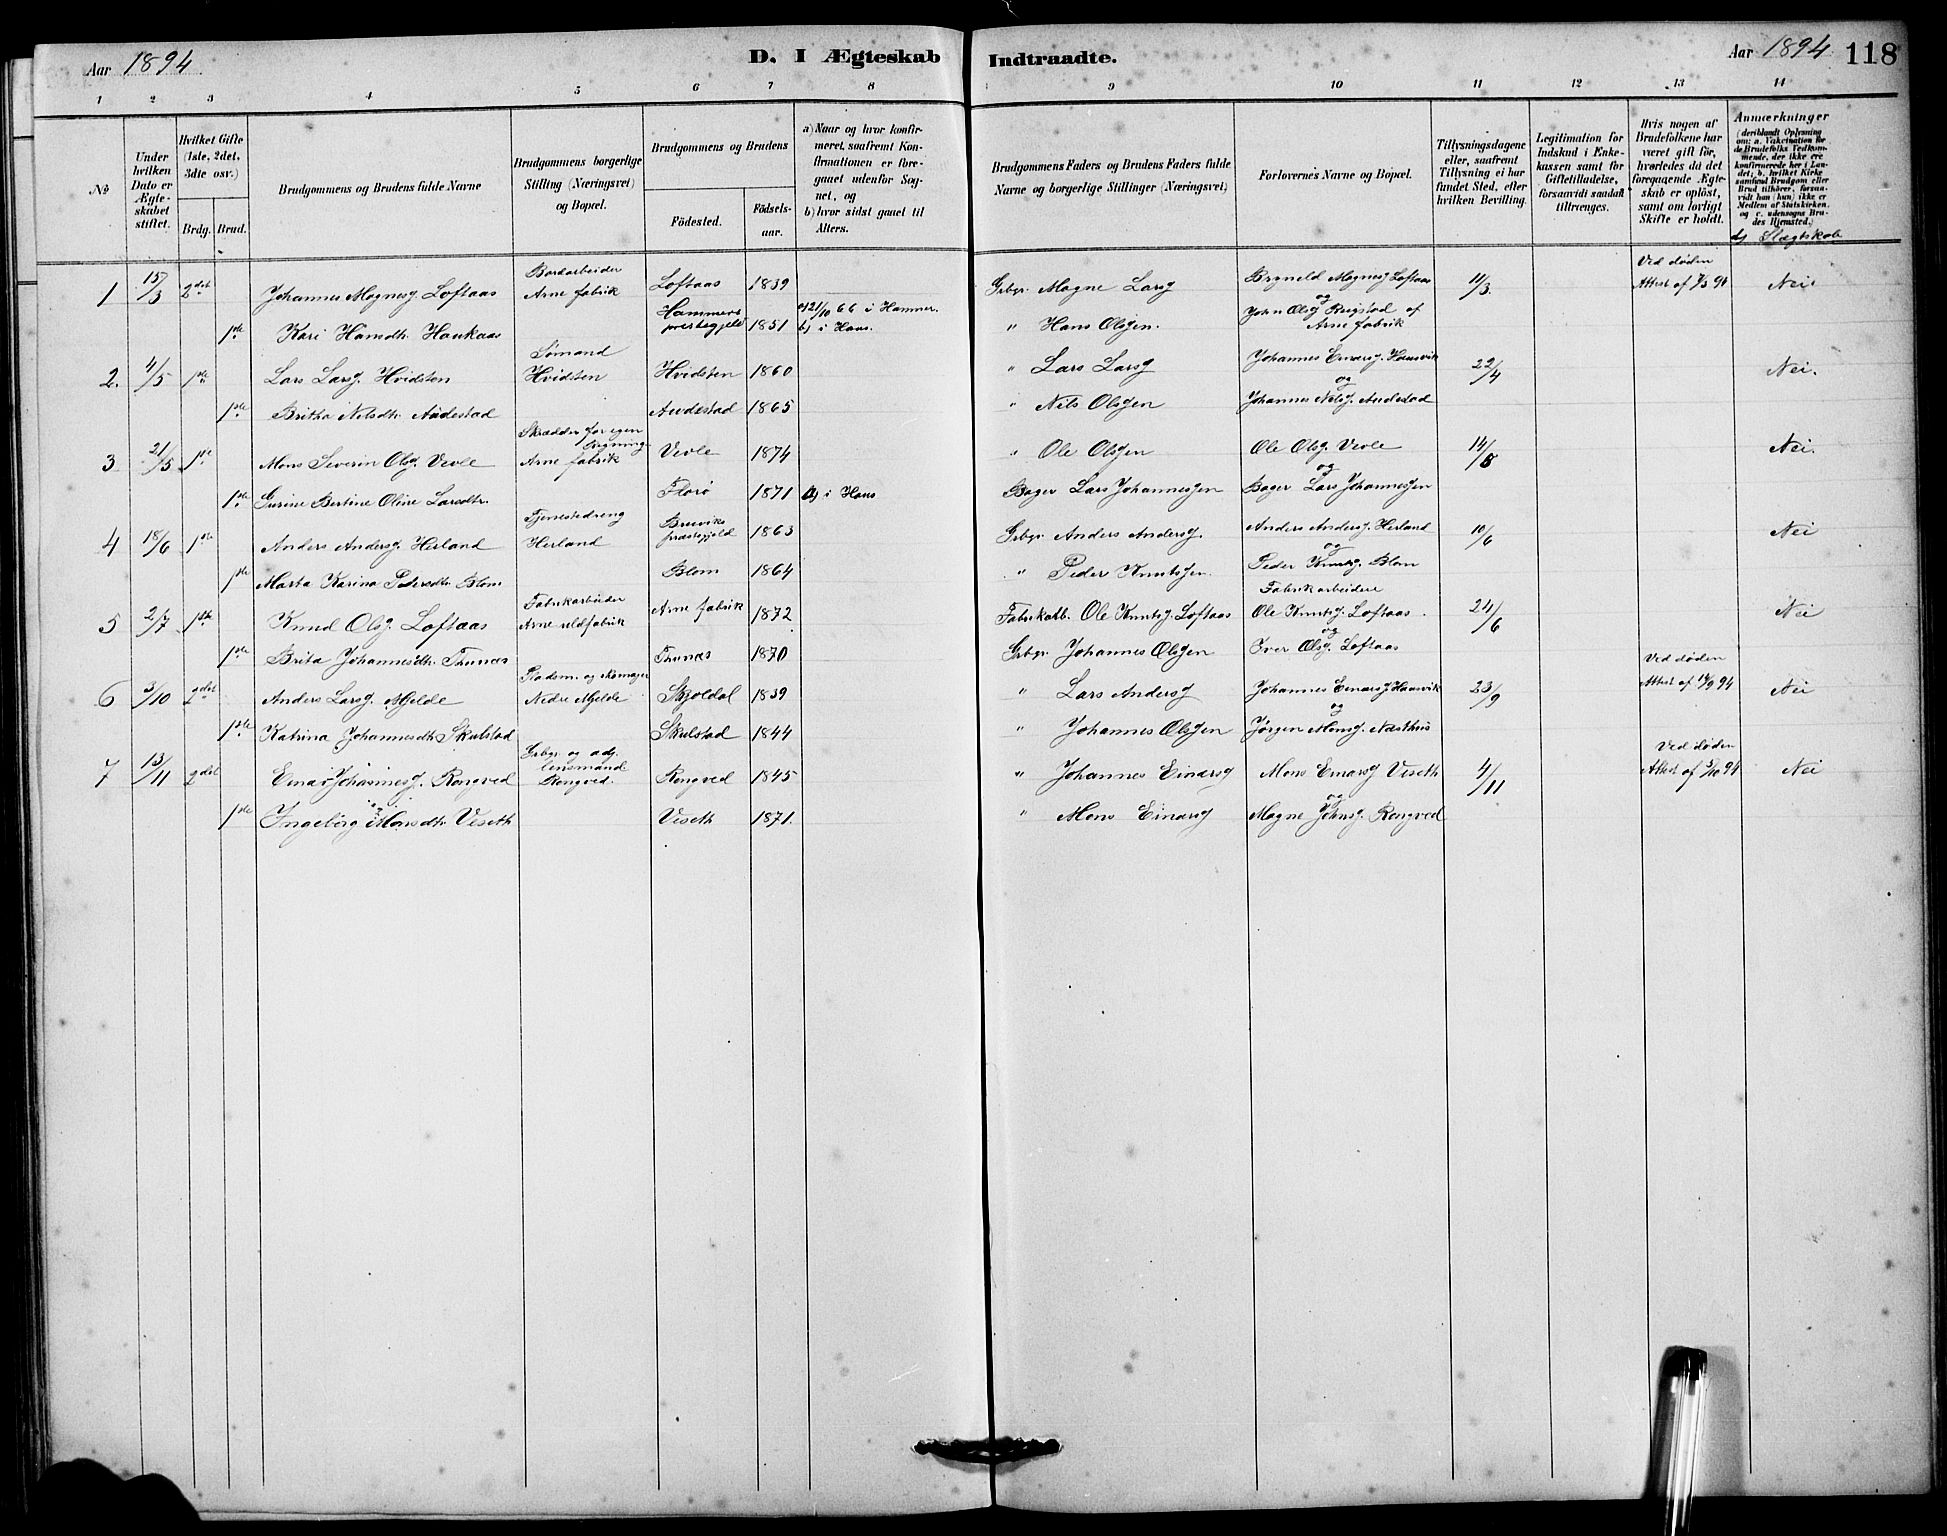 Aar 1894
D. I Ægteskab Indtraadte.
Aar 1894 118
1 2 3 4 5 6 7 8 9 10 11 12 13 14
No
Under hvilken Dato er Ægteskabet stiftet.
Hvilket Gifte (1ste, 2det, 3die osv.)
Brdg. Brud.
Brudgommens og Brudens fulde Navne
Brudgommens borgerlige Stilling (Næringsvei) og Bopæl.
Brudgommens og Brudens
Födested.
Födselsaar.
a) Naar og hvor konfirmeret, saafremt Konfirmationen er foregaaet udenfor Sognet, og
b) hvor sidst gaaet til Alters.
Brudgommens Faders og Brudens Faders fulde Navne og borgerlige Stillinger (Næringsvei)
Forlovernes Navne og Bopæl.
Tillysningsdagene eller, saafremt Tillysning ei har fundet Sted, efter hvilken Bevilling.
Legitimation for Indskud i Enkekassen samt for Giftetilladelse, forsaavidt saadan tiltrænges.
Hvis nogen af Brudefolkene har været gift för, hvorledes da det foregaaende Ægteskab er oplöst, samt om lovligt Skifte er holdt.
Anmærkninger
(deriblandt Oplysning om: a. Vakcination for de Brudefolks Vedkommende, der ikke ere konfirmerede her i Landet; b. hvilket Kirkesamfund Brudgom eller Brud tilhörer, forsaavidt han (hun) ikke er Medlem af Statskirken, og c. udensogns Brudes Hjemsted.)
d) Slægtskab
1 15/3 2det Johannes Magnesg. Loftaas Bordarbeider Arne fabrik Loftaas 1839 Grbgr. Magne Larsg Brynild Magnesg Loftaas og 11/3. Ved døden Attest af 7/3 94 Nei
1ste Kari Hansdtr. Haukaas Hammers prestegjeld 1851 a) 21/10 66 i Hammer. b) i Haus. " Hans Olsgen. John Olsg Rugstad af Arne fabrik
2. 4/5 1ste Lars Larsg. Hvidsten Sømand Hvidsten Hvidsten 1860 " Lars Larsg Johannes Einarsg. Hausvik og 22/4 Nei.
1ste Britha Nilsdtr. Andestad Andestad 1865 " Nils Olsgen Johannes Nilsg. Andestad
3 21/5 1ste Mons Severin Olsg. Vevle Skrædder for egen Regning Arne fabrik Vevle 1874 " Ole Olsgen Ole Olsg. Vevle og 14/5 Nei.
1ste Gurine Bertine Oline Larsdtr. Florø 1871 b) i Haus Bager Lars Johannesgen Bager Lars Johannesgen
4 18/6 1ste Anders Andersg. Herland Tjenestedreng Herland Bruviks præstegjeld 1863 Grbgr. Anders Andersg. Anders Andersg. Herland og 10/6 Nei
1ste Marta Karina Pedersdtr. Blom Blom 1864 " Peder Knutsgen. Peder Knutsg. Blom
5 2/7 1ste Knud Olsg. Loftaas Fabrikarbeider Arne uldfabrik Arne fabrik 1872 Fabrikarb. Ole Knutsg. Loftaas Fabrikarbeidere Ole Knutsg. Loftaas og 24/6 Nei
1ste Brita Johannesdtr. Thunæs Thunæs 1870 Grbgr. Johannes Olsgen Iver Olsg. Loftaas
6 3/10 2det Anders Larsg. Mjelde Pladsm. og skomager Nedre Mjelde Skjoldal 1839 " Lars Andersg Johannes Einarsg Hausvik og 23/9 Ved døden Attest af 14/9 94 Nei
1ste Katrina Johannesdtr. Skulstad Skulstad 1844 " Johannes Olsgen Jørgen Monsg. Næsthus
7 13/11 2det Einar Johannesg. Rongved Grbgr og adj. lensmand Rongved. Rongved 1845 " Johannes Einarsg Mons Einarsg Viseth og 4/11 Ved døden Attest af 5/10 94 Nei
1ste Ingebörg Monsdtr. Viseth Viseth 1871. " Mons Einarsg Magne Johnsg. Rongved